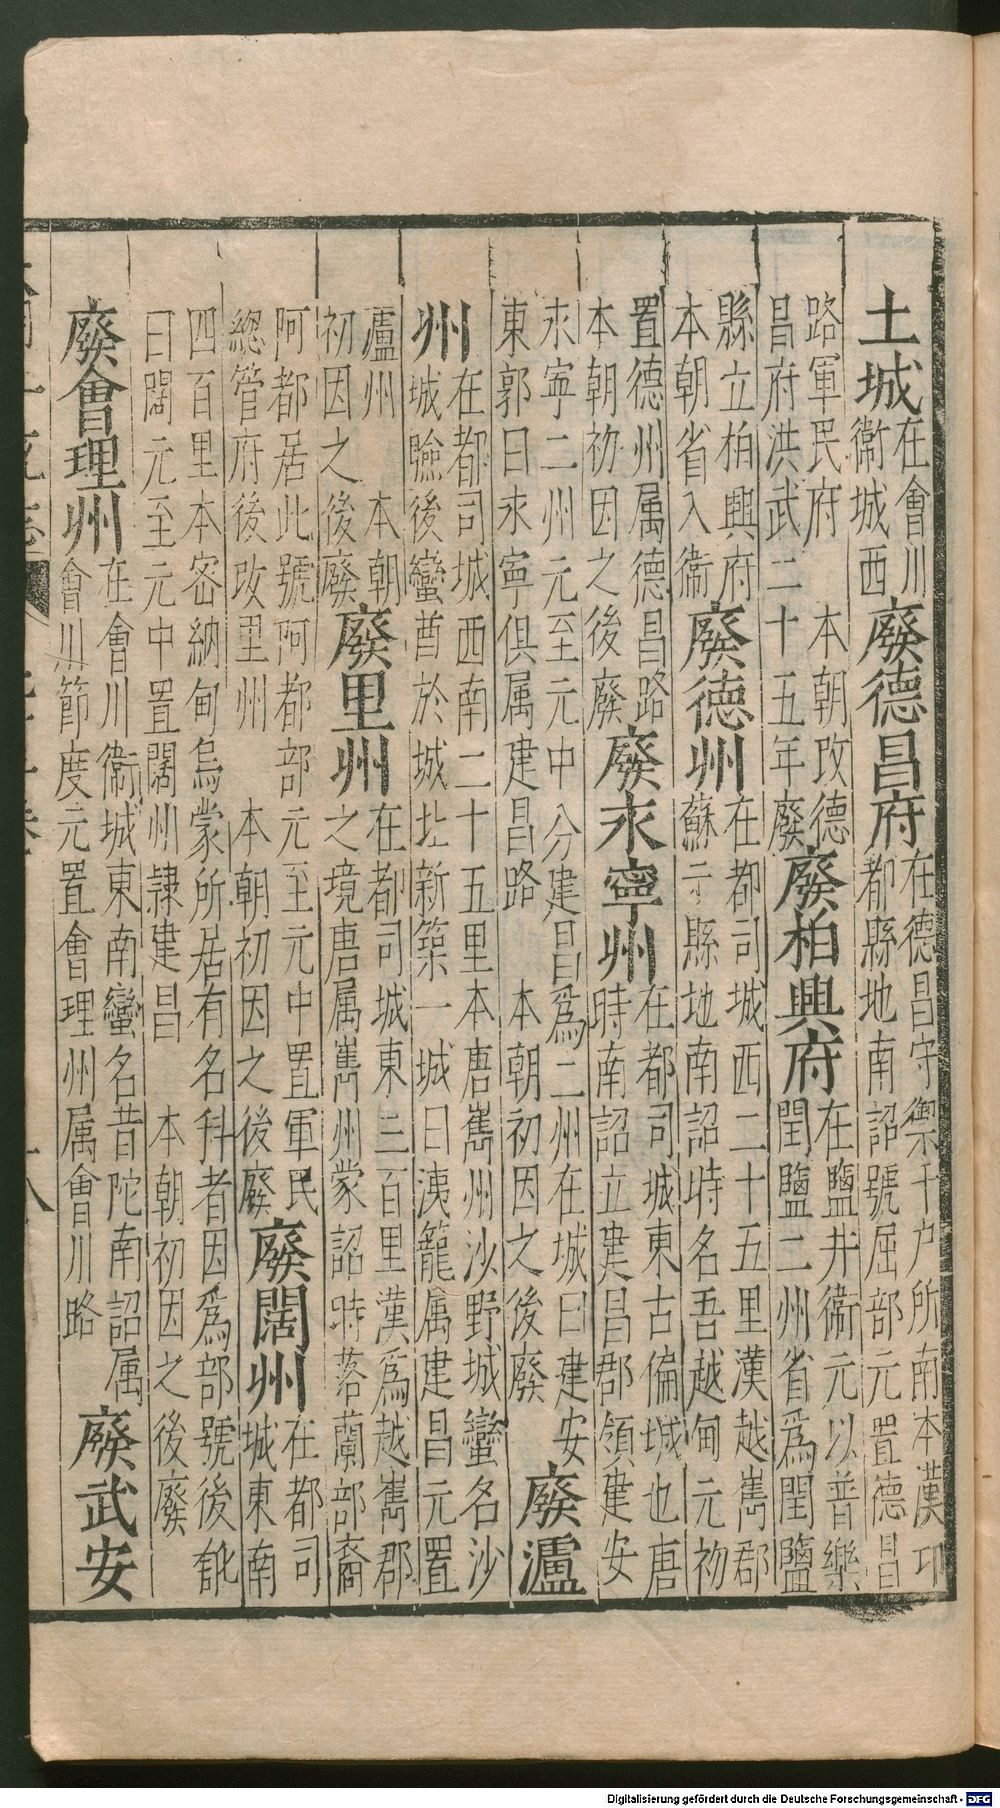 土城
在會川
衞城西
廢德昌府
在德昌守禦千户所南本漢卭
都縣地南詔號屈部元置德昌
路軍民府 本朝改德
昌府洪武二十五年廢
廢柏興府
在鹽井衞元以普樂
閏鹽二州省為閏鹽
縣立柏興府
本朝省入衞
廢德州
在都司城西二十五里漢越嶲郡
蘇示縣地南詔時名吾越甸元初
置德州属德昌路
本朝初因之後廢
廢永寧州
在都司城東古偏城也唐
時南詔立建昌郡領建安
永寧二州元至元中分建昌為二州在城曰建安
東郭曰永寧俱属建昌路 本朝初因之後廢
廢瀘
州
在都司城西南二十五里本唐嶲州沙野城蠻名沙
城瞼後蠻酋於城北新築一城曰洟籠属建昌元置
瀘州 本朝
初因之後廢
廢里州
在都司城東三百里漢為越嶲郡
之境唐属嶲州蒙詔時落蘭部裔
阿都居此號阿都部元至元中置軍民
總管府後改里州 本朝初因之後廢
廢闊州
在都司
城東南
四百里本宻納甸烏蒙所居有名科者因為部號後訛
曰闊元至元中置闊州隷建昌 本朝初因之後廢
廢會理州
在會川衞城東南蠻名昔陀南詔属
會川節度元置會理州属會川路
廢武安
Digitalisierung gefördert durch die Deutsche Forschungsgemeinschaft - DFG